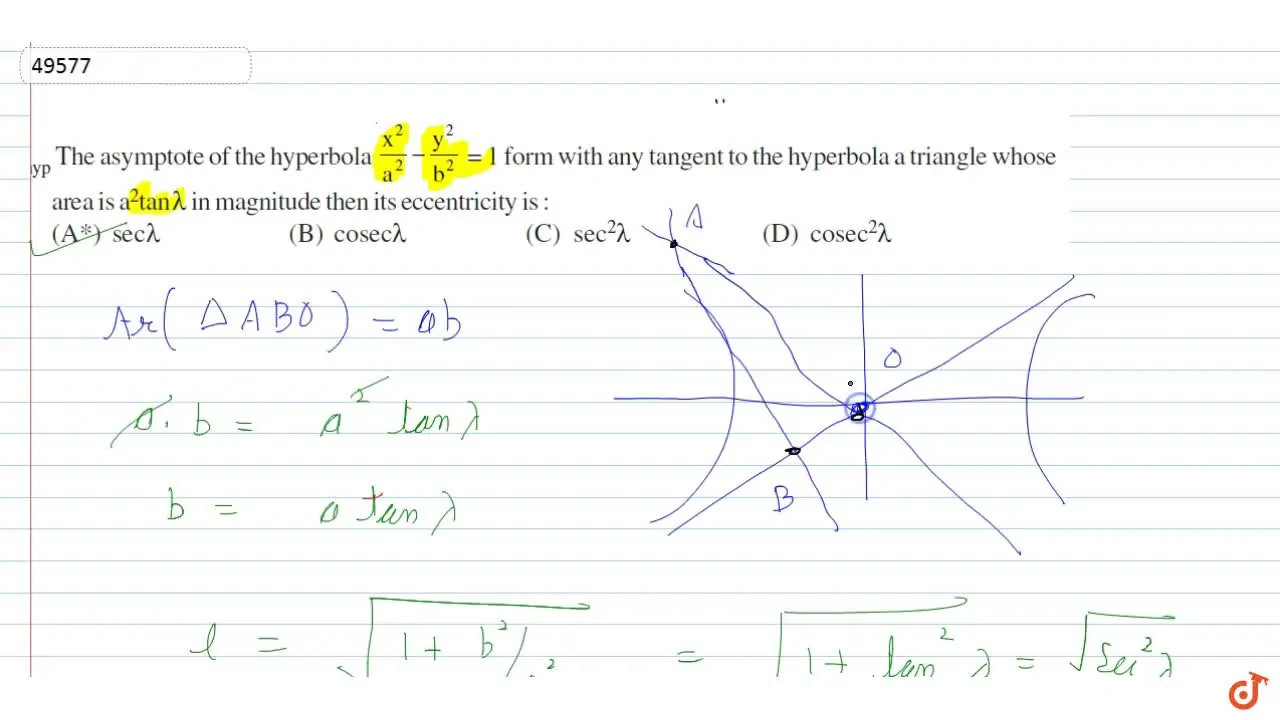 49577
The asymptote of the hyperbola x²/a² − y²/b² = 1 form with any tangent to the hyperbola a triangle whose
yp
area is a²tanλ in magnitude then its eccentricity is :
(A*) secλ (B) cosecλ (C) sec²λ (D) cosec²λ
A
Ar( Δ ABO ) = ab
O
a. b = a² tan λ
B
b = a tan λ
e = √1 + b²/ ² = √1 + tan² λ = √Sec² λ